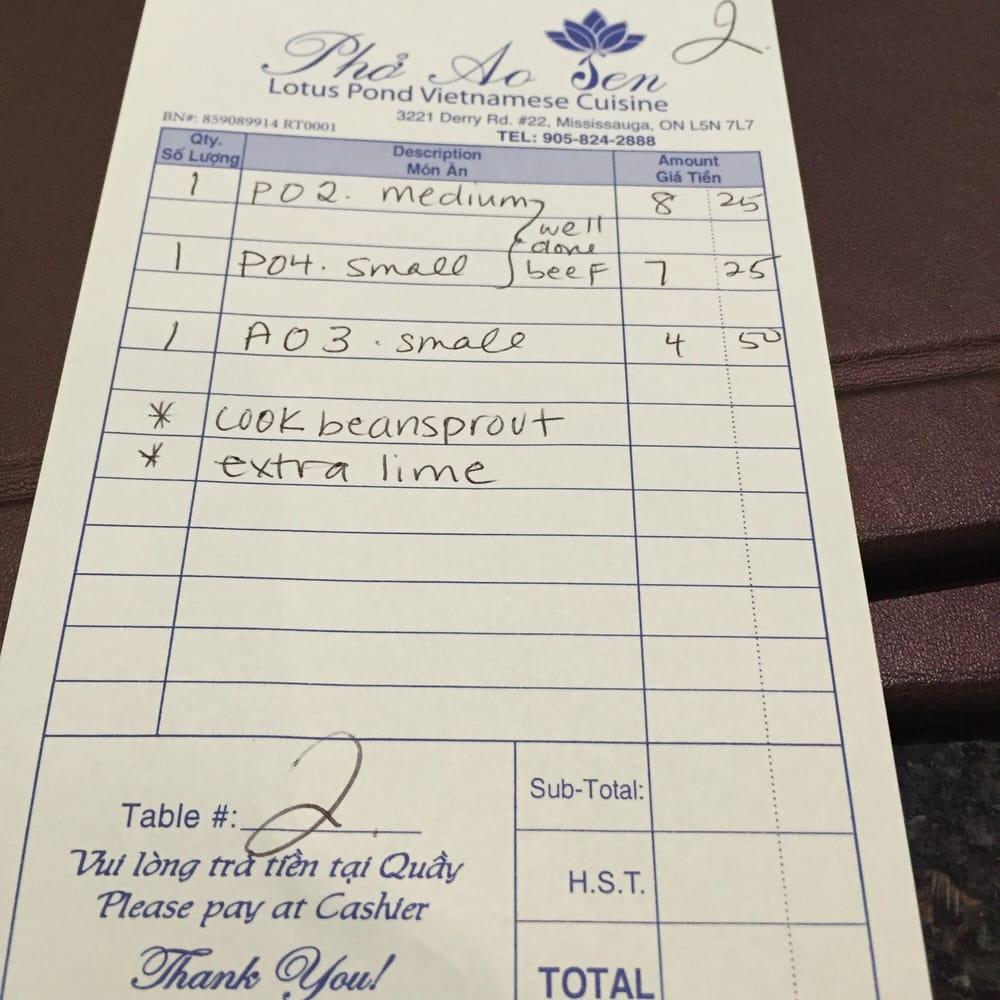 2.
Phở Ao Sen
Lotus Pond Vietnamese Cuisine
BN#: 859089914 RT0001
3221 Derry Rd. #22, Mississauga, ON L5N 7L7
TEL: 905-824-2888
Qty. Description Amount
Số Lượng Món Ăn Giá Tiền
1 P02. medium 8 25
well
done
1 P04. small beef 7 25
1 A03. small 4 50
* cook beansprout
* extra lime
Table #: 2
Sub-Total:
Vui lòng trả tiền tại Quầy
Please pay at Cashier
H.S.T.
Thank You!
TOTAL